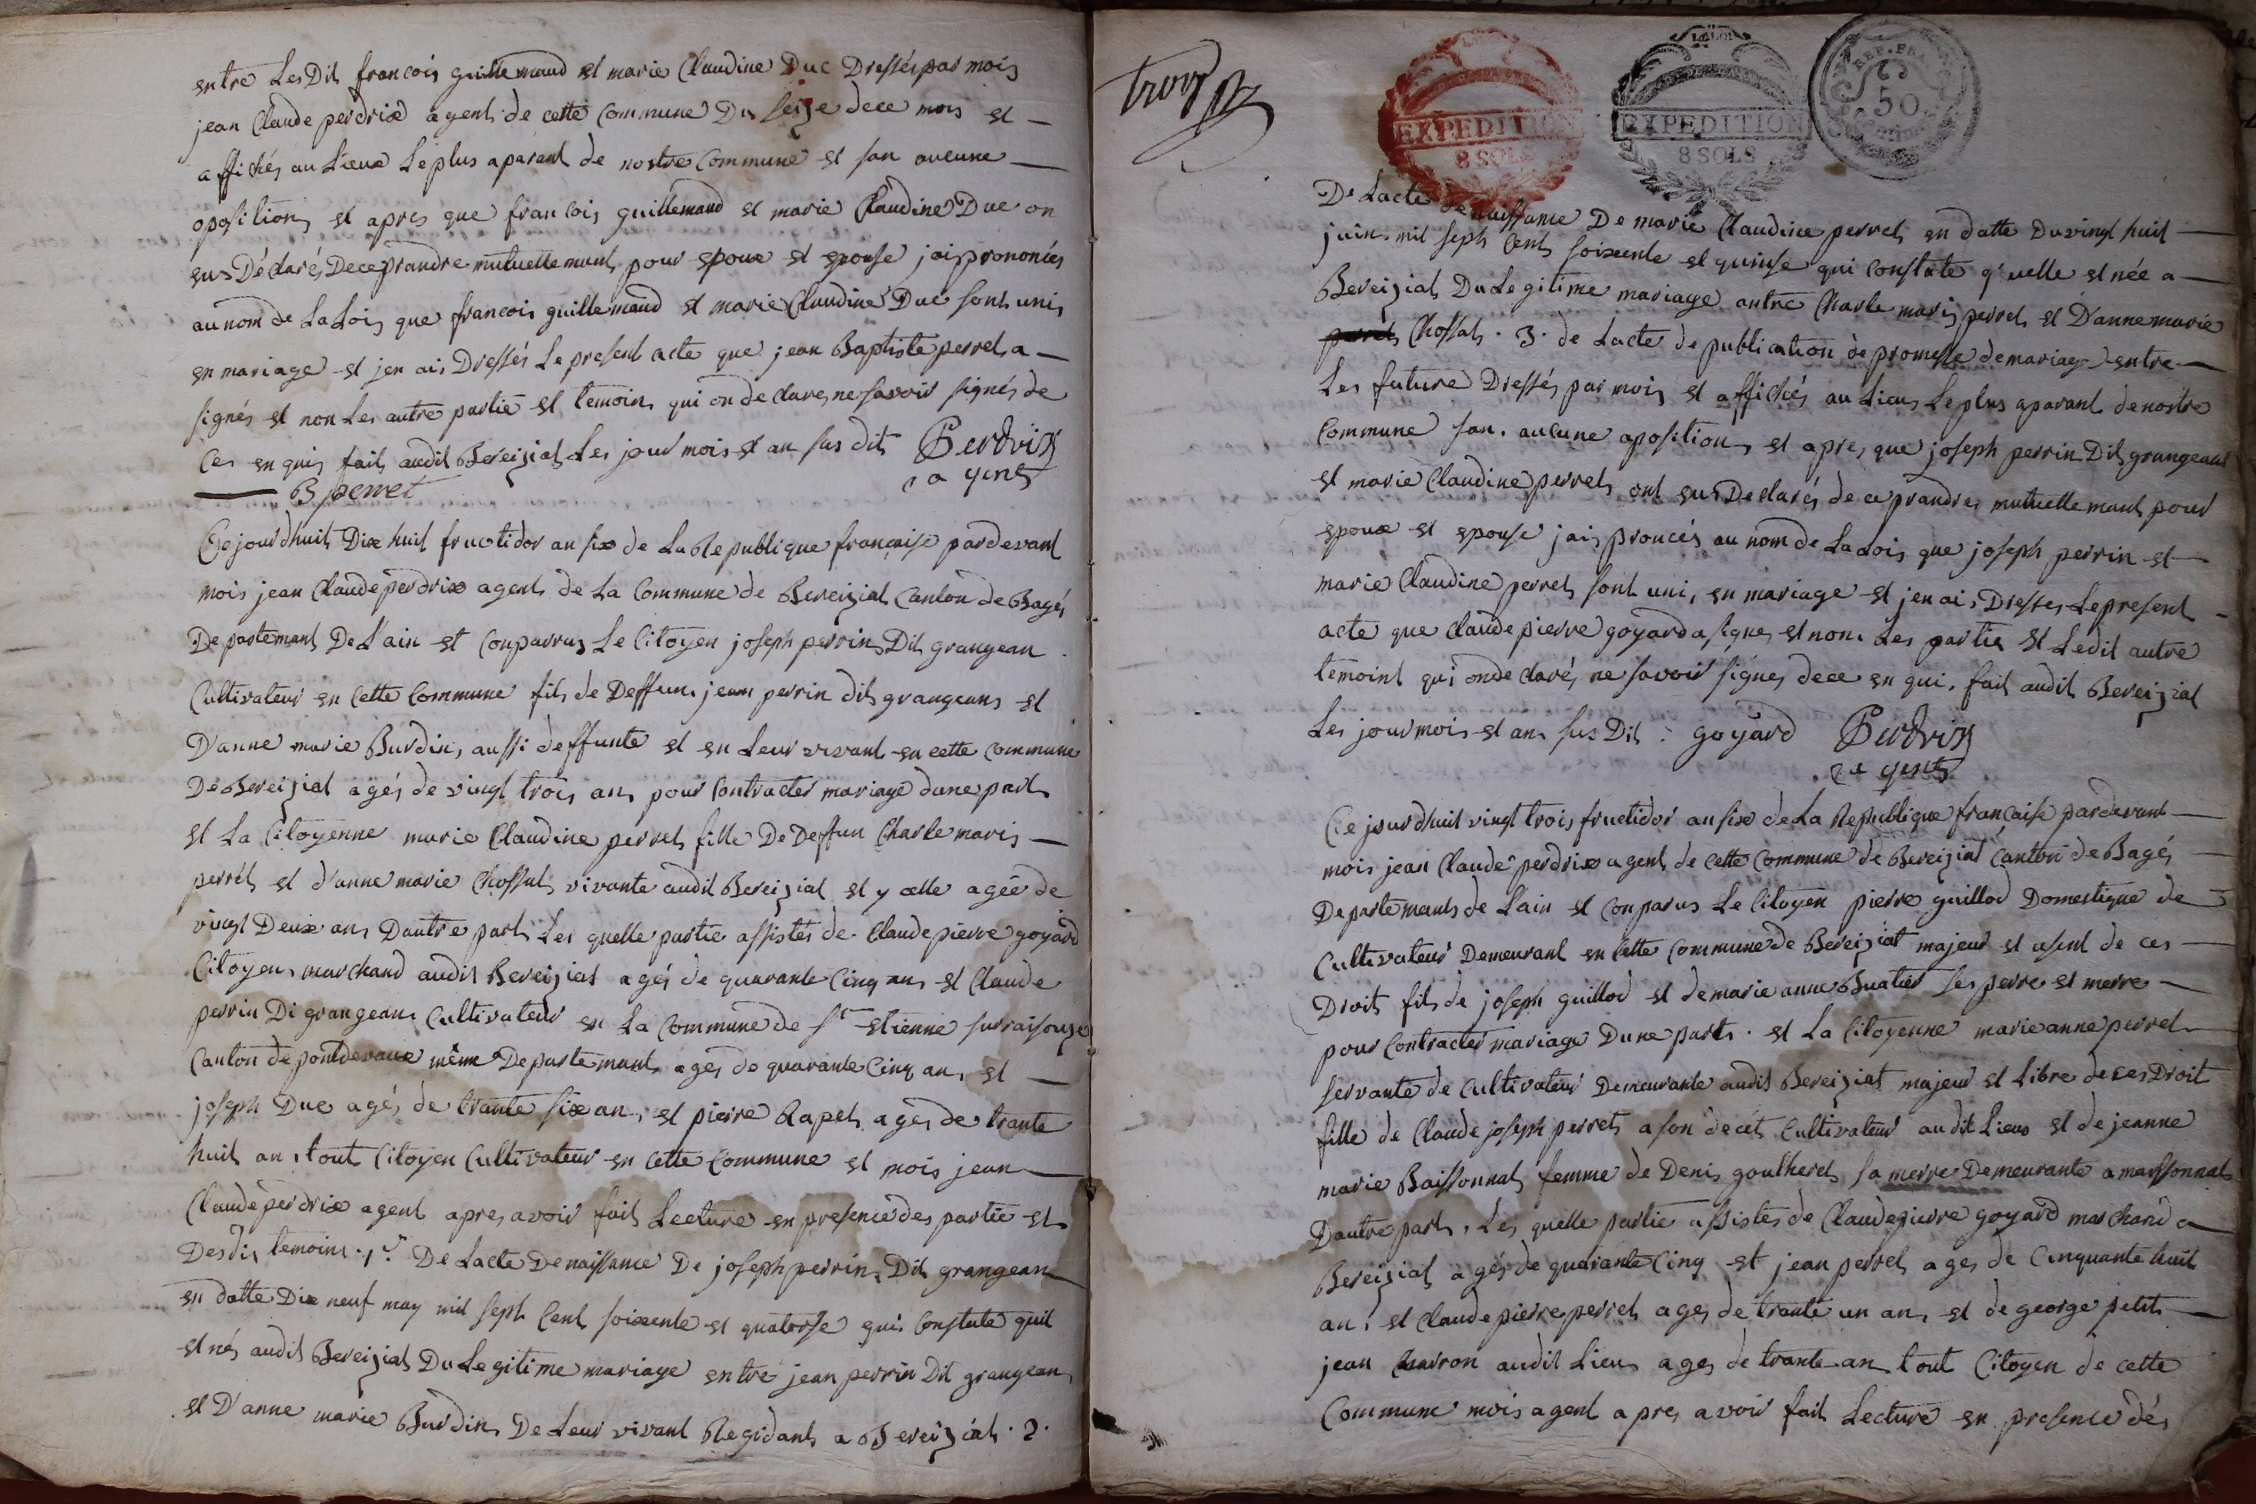 entre Les Dit francois guillemaud et marie Claudine Duc Dressés par mois
jean Claude perdrix agent de cette Commune Du seize dece mois et
affichés au Lieux Le plus aparant de nostre Commune et san aucune
oposition et apres que francois guillemaud et marie Claudine Duc on
eus Déclarés Deceprandre mutuellemant pour epoux et epouse jai prononcés
au nom de La Lois que francois guillemaud et marie Claudine Duc sont unis
en mariage et jen ais Dressés Le present acte que jean Baptiste perret a
signés et non Les autre partie et temoins qui on declares ne savoir signés de
Ces enquis fait audit Bereiziat Les jour mois et an sus dit Perdrix
agent
B perret
Cejourdhuit Dix huit fructidor an six de La Republique francaise pardevant
mois jean Claude perdrix agent de La Commune de Bereiziat Canton de Bagés
Departemant De Lain et Conparrus Le Citoyen joseph perrin Dit grangean
Cultivateur en Cette Commune fils de Deffun jean perrin dit grangeans et
D'anne marie Burdin aussi deffunte et en Leur vivant en cette commune
De Bereiziat agés de vingt trois ans pour Contracter mariage dune part
et La Citoyenne marie Claudine perret fille De Deffun Charle maris
perret et d'anne marie Chossat vivante audit Bereiziat et y celle agée de
vingt Deux ans Dautre part Les quelle partie assistés de Claude pierre goyard
Citoyen marchand audit Bereiziat agés de quarante Cinq ans et Claude
perrin Di grangeans Cultivateur en La Commune de St etienne surraisouze
Canton de pontdevaux même Departemant ages de quarante Cinq ans et
joseph Duc agés de trante six ans et pierre Rapet ages de trante
huit ans tout Citoyen Cultivateur en Cette Commune et mois jean
Claude perdrix agent apres avoir fait Lecture en presence des partie et
Desdis temoins 1er De Lacte De naissance De joseph perrin Dit grangean
en datte Dix neuf may mil seph Cent soixente et quatorse qui Constate quil
et nés audit Bereiziat Du Legitime mariage entre jean perrin Dit grangean
et D'anne marie Burdin De Leur vivant Regidant a Bereiziat . 2 .
trois
EXPEDITION
8 SOLS
LA LOI
EXPEDITION
8 SOLS
REP. FRA.
50
De Lacte de naissance De marie Claudine perret en datte Duvingt huit
juin mil seph Cent soixente et quinse qui Constate quelle et née a
Bereiziat Du Legitime mariage antre Charle maris perret et D'anne marie
Chossat . 3 . de Lacte de publication de promesse de mariage entre
Les future Dressés par mois et affichés au Lieus Le plus aparant de nostre
Commune san aucune aposition et apres que joseph perrin Dit grangeans
et marie Claudine perret ont eus Declarés de ce prandre mutuellemant pour
epoux et epouse jais proncés au nom de La Lois que joseph perrin et
marie Claudine perret sont unis en mariage et jen ais Dresses Lepresent
acte que Claude pierre goyard a signes et non Les partie et Ledit autre
temoint qui on declarés ne savoir signés dece en quis fait audit Bereiziat
Les jour mois et an sus Dit : goyard Perdrix
agent
Cejourdhuit vingt trois fructidor an six de La Republique francaise pardevant
mois jean Claude perdrix agent de Cette Commune de Bereiziat Canton de Bagés
Departemants de Lain et Conparus Le Citoyen pierre guillod Domestique de
Cultivateur Demeurant en Cette Commune de Bereiziat majeur et usent de ces
Droit fils de joseph guillod et de marie anne Buatier ses perre et merre
pour Contracter mariage Dune part . et La Citoyenne marie anne perret
servante de Cultivateur Demeurante audit Bereiziat majeur et Libre de ces Droit
fille de Claude joseph perret a son decét Cultivateur audit Lieus et de jeanne
marie Baissonnat femme de Denis goutheret sa merre Demeurante a marssonnat
Dautre part . Les quelle partie assistes de Claude pierre goyard marchand a
Bereiziat agés de quarante Cinq et jean perret ages de Cinquante huit
ans et Claude pierre perret ages de trante un ans et de george petit
jean audit Lieus ages de trante an tout Citoyen de cette
Commune mois agent apres avoir fait Lecture en presence dés